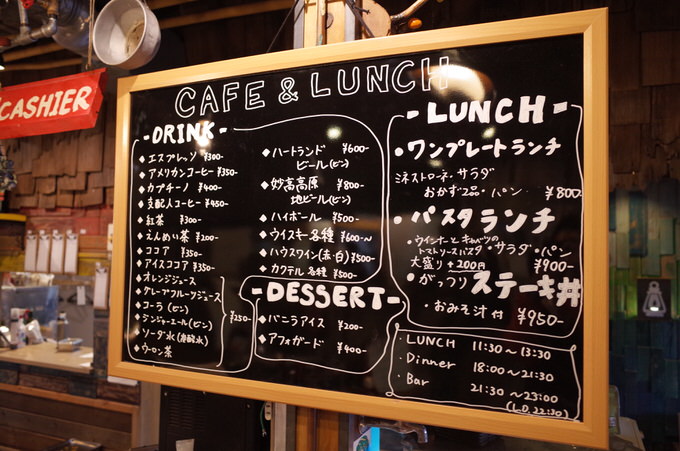 CASHIER
CAFE & LUNCH
-DRINK-
◆エスプレッソ ¥300-
◆アメリカンコーヒー ¥350
◆カプチーノ ¥400-
◆支配人コーヒー ¥450-
◆紅茶 ¥300-
◆えんめい茶 ¥200-
◆ココア ¥350-
◆アイスココア ¥350
◆オレンジジュース
◆グレープフルーツジュース
◆コーラ(ビン)
◆ジンジャーエール(ビン)
◆ソーダ水(炭酸水)
◆ウーロン茶
¥250-
◆ハートランド ¥600-
ビール(ビン)
◆妙高高原 ¥800-
地ビール(ビン)
◆ハイボール ¥500-
◆ウイスキー各種 ¥600~
◆ハウスワイン(赤・白) ¥500-
◆カクテル各種 ¥500-
-DESSERT-
◆バニラアイス ¥200-
◆アフォガード ¥400-
-LUNCH-
・ワンプレートランチ
ミネストローネ・サラダ
おかず2品・パン ¥800-
・パスタランチ
・ウインナーとキャベツの
トマトソースパスタ・サラダ・パン
大盛り+200円 ¥900-
・がっつりステーキ丼
・おみそ汁付 ¥950-
・LUNCH 11:30~13:30
・Dinner 18:00~21:30
・Bar 21:30~23:00
(L.O.22:30)